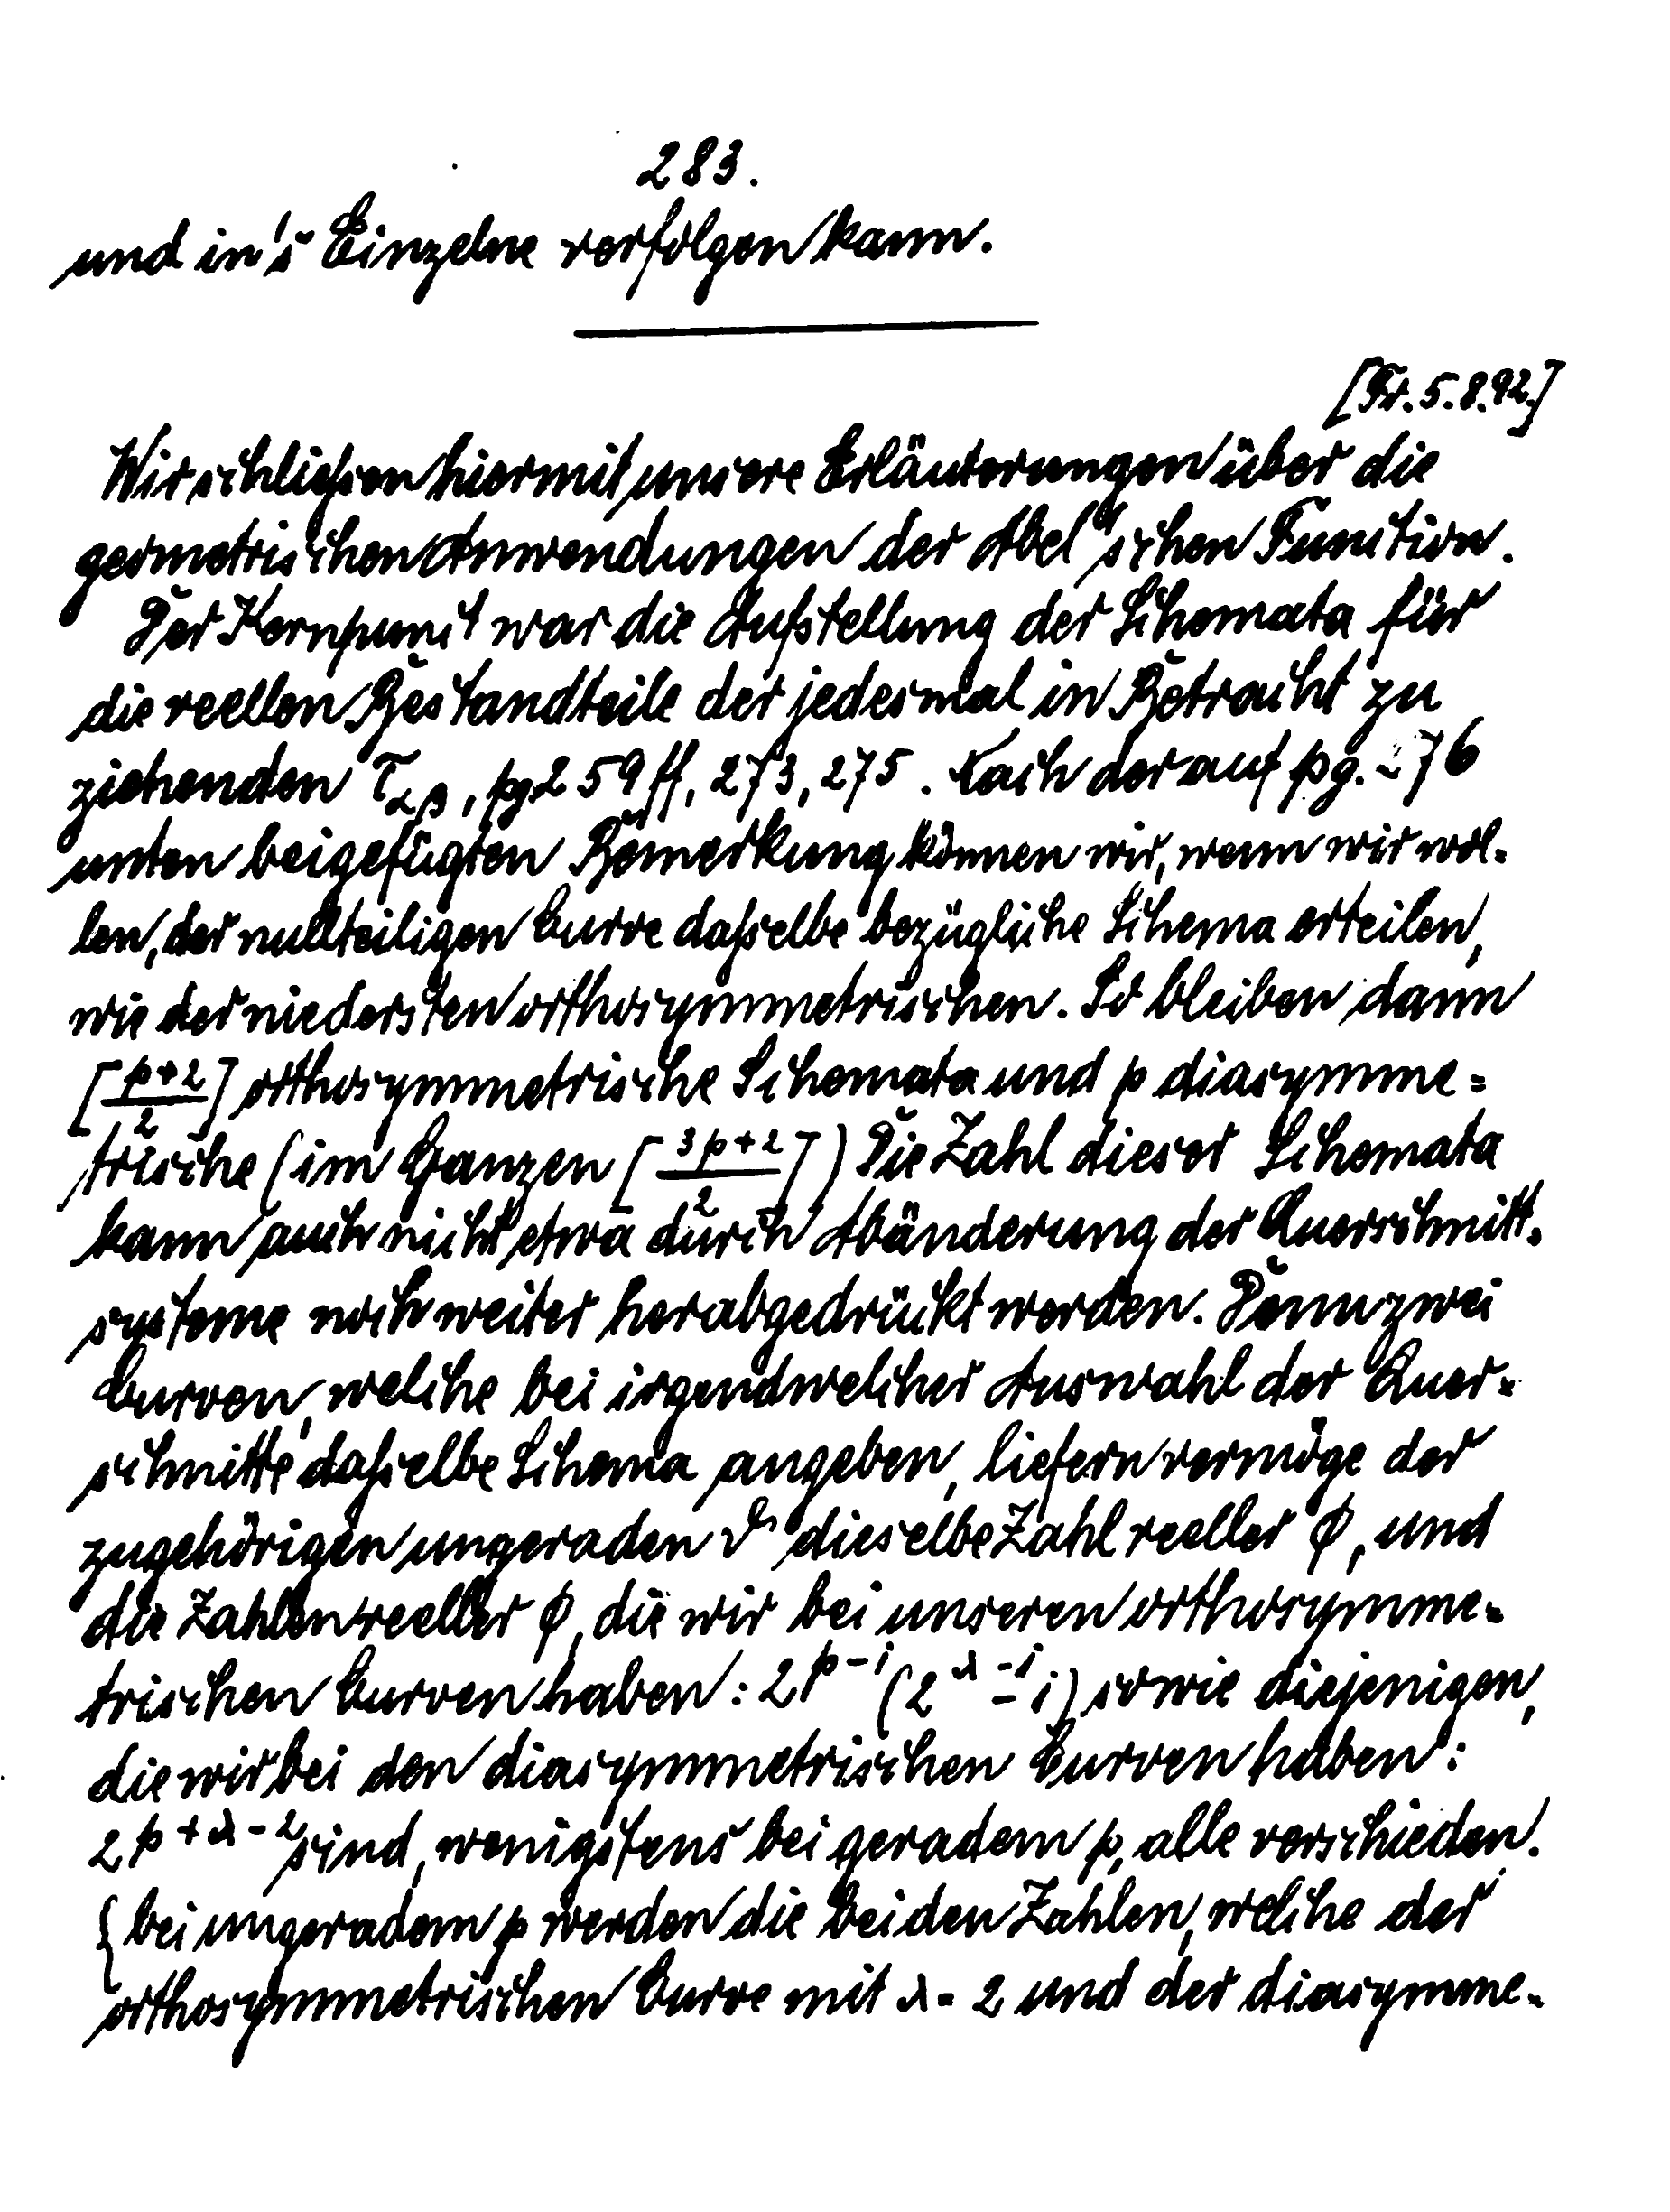 283.
und in's Einzelne verfolgen kann.
[Fr. 5.8.92.]
Wir schließen hiermit unsere Erläuterungen über die
geometrischen Anwendungen der Abel'schen Function.
Der Kernpunct war die Aufstellung der Schemata für
die reellen Bestandteile der jedesmal in Betracht zu
ziehenden τ_{αβ}, pg 259 ff, 273, 275. Nach der auf pg. 276
unten beigefügten Bemerkung können wir, wenn wir wol-
len, der nullteiligen Curve daßelbe bezügliche Schema erteilen,
wie der niedersten orthosymmetrischen. So bleiben dann
[(p+2)/2] orthosymmetrische Schemata und p diasymme=
trische (im Ganzen [(3p+2)/2]) Die Zahl dieser Schemata
kann auch nicht etwa durch Abänderung der Querschnitt-
systeme noch weiter herabgedrückt werden. Denn zwei
Curven, welche bei irgendwelcher Auswahl der Quer-
schnitte daßelbe Schema angeben, liefern vermöge der
zugehörigen ungeraden ϑ dieselbe Zahl reeller φ, und
die Zahlen reeller φ, die wir bei unseren orthosymme-
trischen Curven haben: 2^{p-1}(2^{λ-1}-1) sowie diejenigen,
die wir bei den diasymmetrischen Curven haben:
2^{p+λ-2} sind, wenigstens bei geradem p, alle verschieden.
{bei ungeradem p werden die beiden Zahlen, welche der
orthosymmetrischen Curve mit λ=2 und der diasymme-